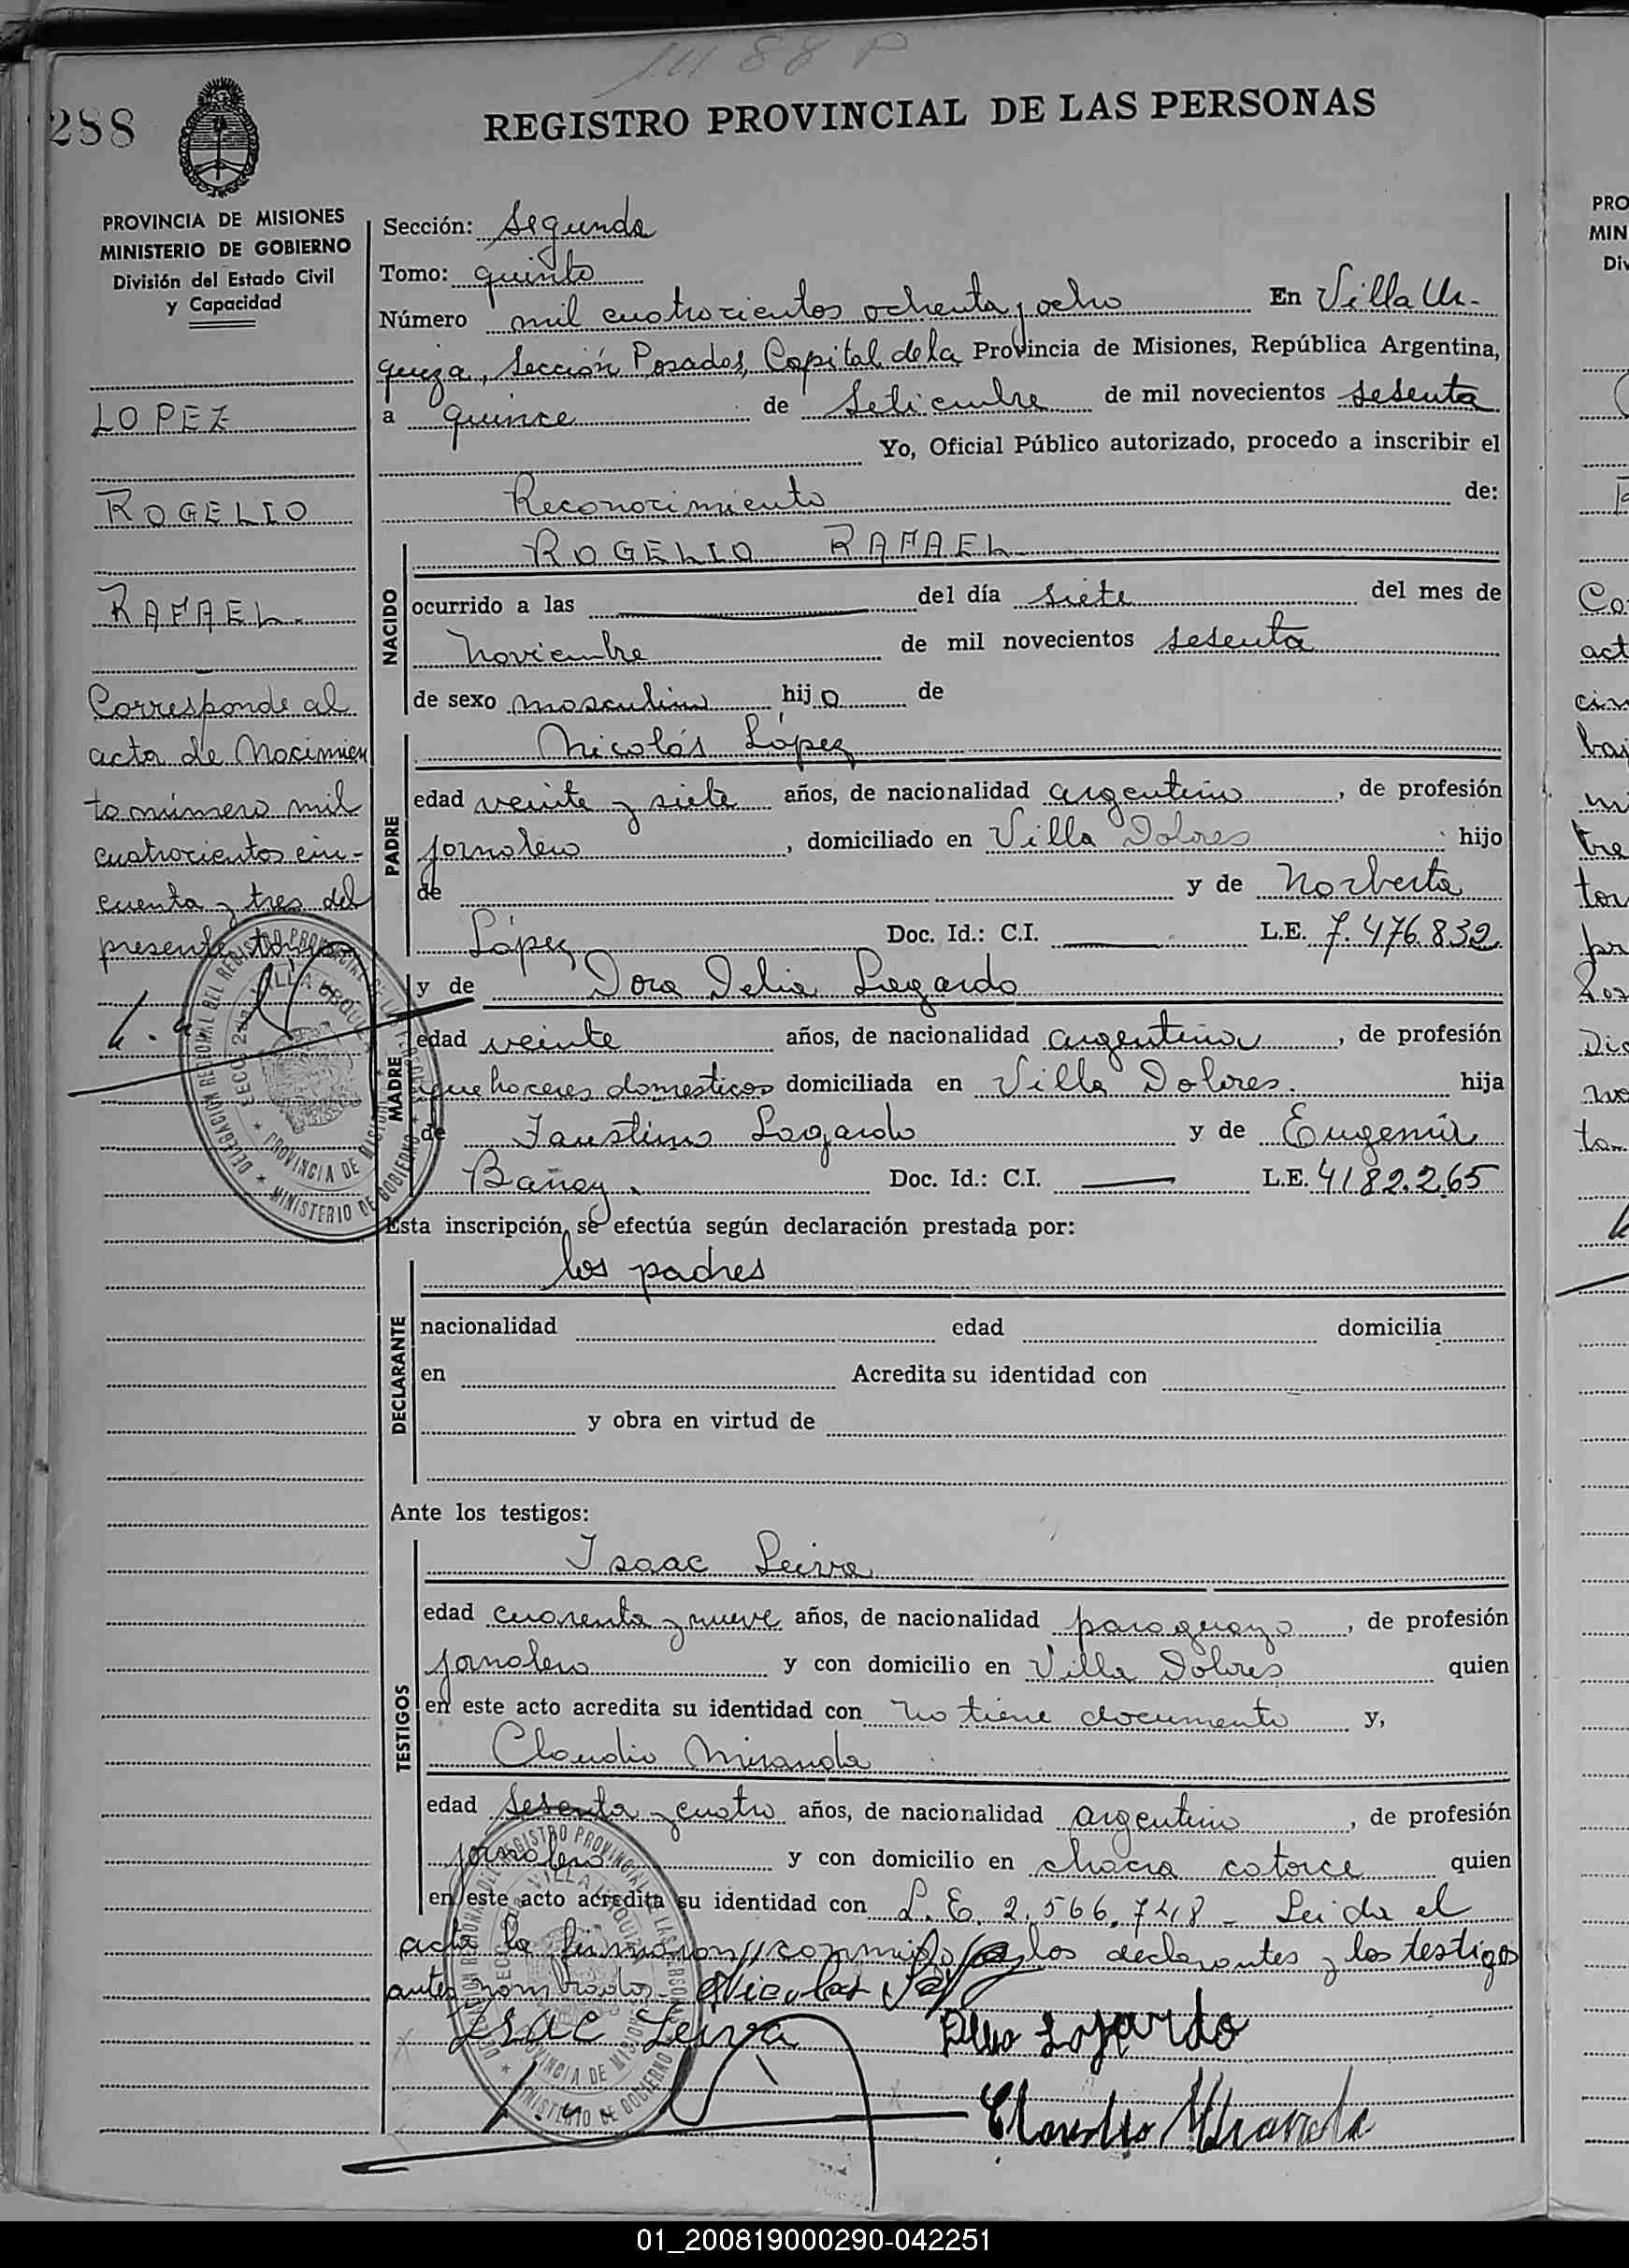 1488 P
288
REGISTRO PROVINCIAL DE LAS PERSONAS
PROVINCIA DE MISIONES
MINISTERIO DE GOBIERNO
División del Estado Civil
y Capacidad
LOPEZ
ROGELIO
RAFAEL.
Corresponde al
acta de Nacimien
to número mil
cuatrocientos cin-
cuenta y tres del
presente tomo
Sección: Segunda
Tomo: quinto
Número mil cuatrocientos ochenta y ocho En Villa Ur-
quiza, Sección Posadas, Capital de la Provincia de Misiones, República Argentina,
a quince de Setiembre de mil novecientos sesenta
Yo, Oficial Público autorizado, procedo a inscribir el
Reconocimiento de:
ROGELIO RAFAEL
NACIDO
ocurrido a las del día siete del mes de
Noviembre de mil novecientos sesenta
de sexo masculino hijo de
PADRE
Nicolás López
edad veinte y siete años, de nacionalidad argentino, de profesión
jornalero, domiciliado en Villa Dolores hijo
de y de Norberta
López Doc. Id.: C.I. L.E. 7.476.832
MADRE
y de Dora Delia Legardo
edad veinte años, de nacionalidad argentina, de profesión
quehaceres domesticos domiciliada en Villa Dolores. hija
de Faustino Lagardo y de Eugenia
Bañay. Doc. Id.: C.I. L.E. 4182.265
Esta inscripción se efectúa según declaración prestada por:
los padres
DECLARANTE
nacionalidad edad domicilia
en Acredita su identidad con
y obra en virtud de
Ante los testigos:
TESTIGOS
Isaac Leiva
edad cuarenta y nueve años, de nacionalidad paraguayo, de profesión
jornalero y con domicilio en Villa Dolores quien
en este acto acredita su identidad con no tiene documento y,
Claudio Miranda
edad sesenta y cuatro años, de nacionalidad argentino, de profesión
jornalero y con domicilio en chacra catorce quien
en este acto acredita su identidad con L.E. 2.566.748 - Leida el
acta la firmaron conmigo los declarantes y los testigos
antes nombrados - Nicolas
Isac Leiva
Lagardo
Claudio Miranda
DELEGACION REGIONAL DEL REGISTRO PROVINCIAL DE LAS PERSONAS
VILLA URQUIZA
PROVINCIA DE MISIONES
MINISTERIO DE GOBIERNO
PRO
MIN
Div
01_200819000290-042251